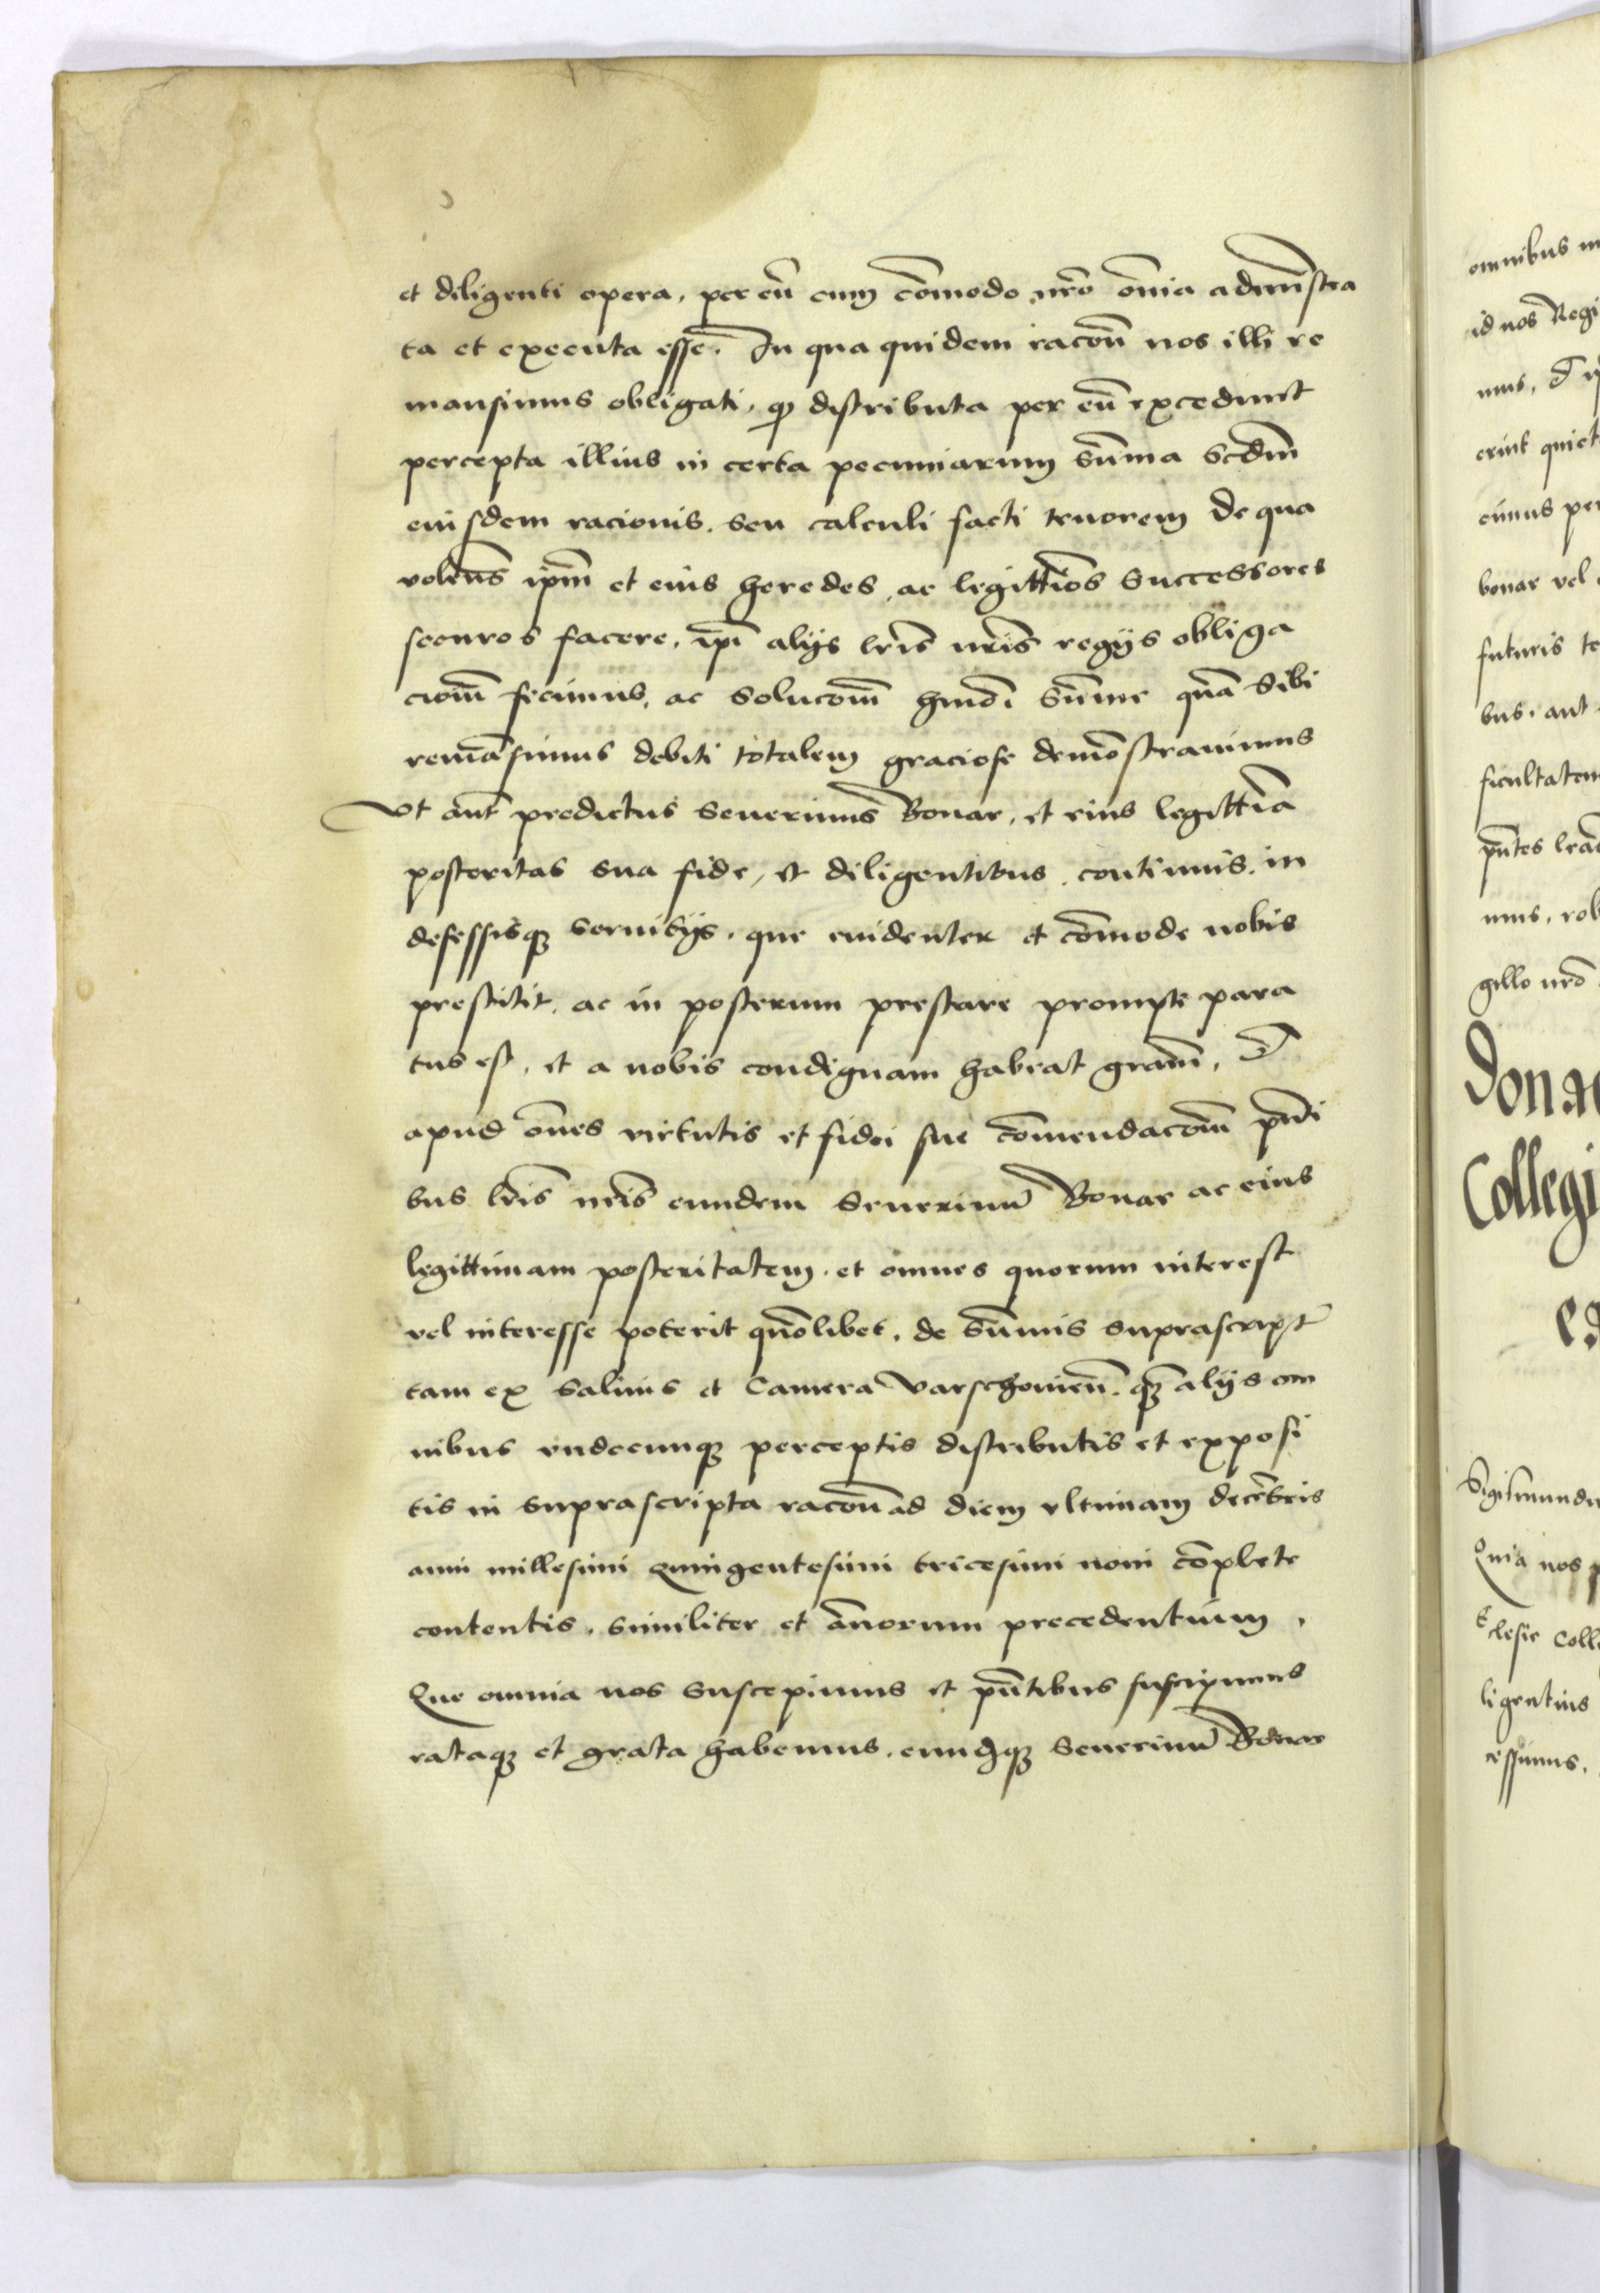 et diligenti opera, per eū cum cōmodo nr̄o om̄ia adm̄istra
ta et executa esse. In qua quidem racoē nos illi re
mansimus obligati, qꝫ distributa per eū excedunt
percepta illius in certa pecuniarum sūma scdm̄
eiusdem racionis. seu calculi facti tenorem De qua
volen̄s ip̄m et eius heredes, ac legittīos successores
securos facere, ip̄i alijs lr̄is nr̄is regijs obliga
cioēm fecimus, ac solucoēm hmōi sūme quā sibi
remāsimus debiti totalem graciose demōstrauimus
Vt aut̄ predictus Seuerinus Bonar, et eius legittīa
posteritas sua fide, et diligentibus, continuis, in
defessisqꝫ seruitijs, que euidenter et cōmode nobis
prestitit, ac in posterum prestare prompte para
tus est, et a nobis condignam habeat gram̄, Et
apud om̄es virtutis et fidei sue cōmendacoēm pn̄ti
bus lr̄is nr̄is eundem Seuerinū Bonar ac eius
legittimam posteritatem, et omnes quorum interest
vel interesse poterit quōlibet, de sūmis suprascript̄
tam ex salinis et Camera Varschouien̄. qꝫ alijs om
nibus vndecunqꝫ perceptis distributis et exposi
tis in suprascripta racoē ad diem vltimam decēbris
anni millesimi Quingentesimi tricesimi noni cōplete
contentis, similiter et ānorum precedentium,
Que omnia nos suscepimus et pn̄tibus suscipimus
rataqꝫ et grata habemus, eundqꝫ Seuerinū Bonar
omnibus
id nos Regi
mus, Et
erint quiet
cimus per
bonar vel
futuris te
bus, aut
ficultatem
pn̄tes
mus, rob
gillo nr̄o
Donac
Collegi
Sigismundu
Quia nos
Eclesie Coll
ligentius
cessimus.